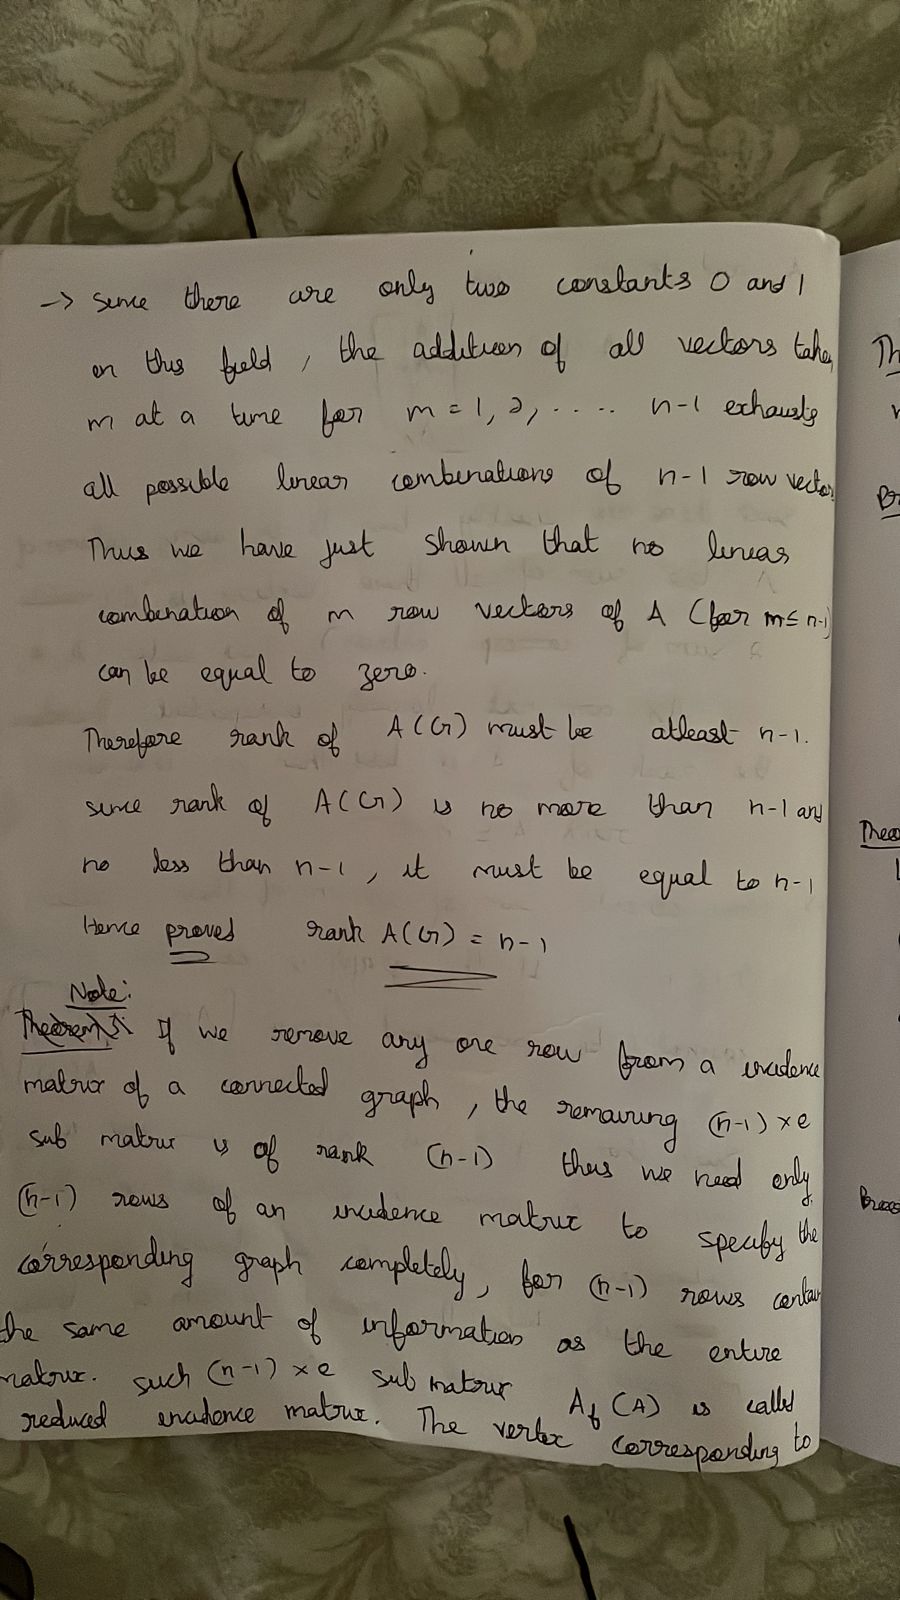 → since there are only two constants 0 and 1
in this field, the addition of all vectors taken
m at a time for m = 1, 2, .... n-1 exhausts
all possible linear combinations of n-1 row vector
Thus we have just shown that no linear
combination of m row vectors of A (for m ≤ n-1)
can be equal to zero.
Therefore rank of A(G) must be atleast n-1.
since rank of A(G) is no more than n-1 and
no less than n-1, it must be equal to n-1
Hence proved rank A(G) = n-1
Note:
If we remove any one row from a incidence
matrix of a connected graph, the remaining (n-1) x e
sub matrix is of rank (n-1) thus we need only
(n-1) rows of an incidence matrix to specify the
corresponding graph completely, for (n-1) rows contain
the same amount of information as the entire
matrix. such (n-1) x e sub matrix Af (A) is called
reduced incidence matrix. The vertex corresponding to
Th
Theo